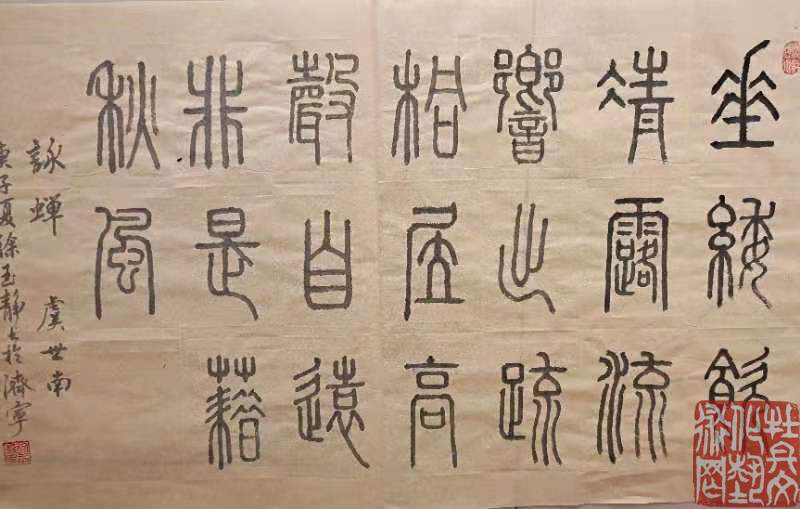 垂緌飲
清露流
響出疏
桐居高
聲自遠
非是藉
秋風
詠蟬 虞世南
庚子夏徐玉靜书於濟寧